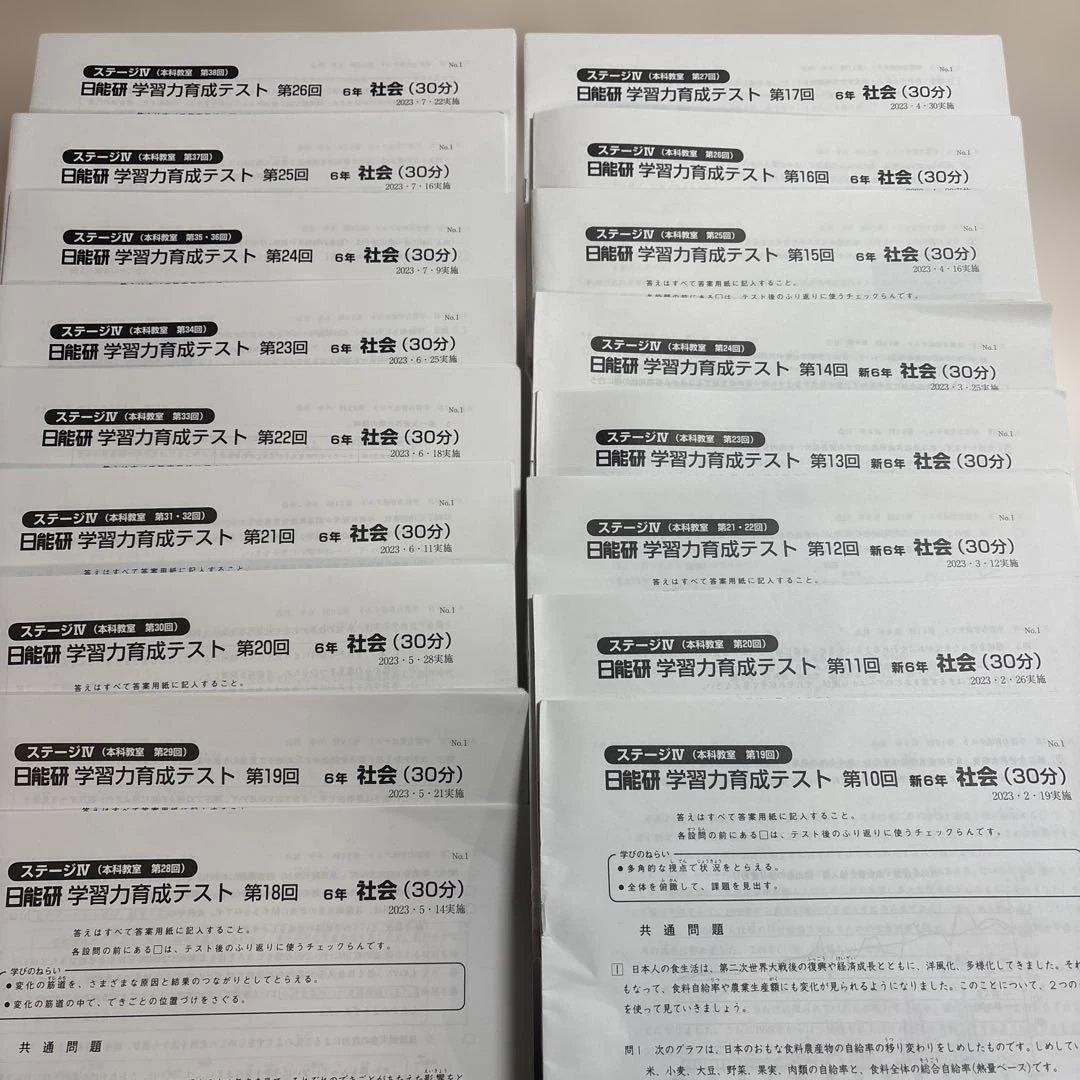 No.1
ステージⅣ（本科教室　第38回）
日能研 学習力育成テスト 第26回 6年 社会（30分）
2023・7・22実施
No.1
ステージⅣ（本科教室　第37回）
日能研 学習力育成テスト 第25回 6年 社会（30分）
2023・7・16実施
No.1
ステージⅣ（本科教室　第35・36回）
日能研 学習力育成テスト 第24回 6年 社会（30分）
2023・7・9実施
No.1
ステージⅣ（本科教室　第34回）
日能研 学習力育成テスト 第23回 6年 社会（30分）
2023・6・25実施
No.1
ステージⅣ（本科教室　第33回）
日能研 学習力育成テスト 第22回 6年 社会（30分）
2023・6・18実施
No.1
ステージⅣ（本科教室　第31・32回）
日能研 学習力育成テスト 第21回 6年 社会（30分）
2023・6・11実施
答えはすべて答案用紙に記入すること。
No.1
ステージⅣ（本科教室　第30回）
日能研 学習力育成テスト 第20回 6年 社会（30分）
2023・5・28実施
答えはすべて答案用紙に記入すること。
No.1
ステージⅣ（本科教室　第29回）
日能研 学習力育成テスト 第19回 6年 社会（30分）
2023・5・21実施
答えはすべて答案用紙に記入すること。
No.1
ステージⅣ（本科教室　第28回）
日能研 学習力育成テスト 第18回 6年 社会（30分）
2023・5・14実施
答えはすべて答案用紙に記入すること。
各設問の前にある□は、テスト後のふり返りに使うチェックらんです。
学びのねらい
●変化の筋道を、さまざまな原因と結果のつながりとしてとらえる。
●変化の筋道の中で、できごとの位置づけをさぐる。
共通問題
No.1
ステージⅣ（本科教室　第27回）
日能研 学習力育成テスト 第17回 6年 社会（30分）
2023・4・30実施
No.1
ステージⅣ（本科教室　第26回）
日能研 学習力育成テスト 第16回 6年 社会（30分）
No.1
ステージⅣ（本科教室　第25回）
日能研 学習力育成テスト 第15回 6年 社会（30分）
2023・4・16実施
答えはすべて答案用紙に記入すること。
各設問の前にある□は、テスト後のふり返りに使うチェックらんです。
No.1
ステージⅣ（本科教室　第24回）
日能研 学習力育成テスト 第14回 新6年 社会（30分）
2023・3・25実施
No.1
ステージⅣ（本科教室　第23回）
日能研 学習力育成テスト 第13回 新6年 社会（30分）
No.1
ステージⅣ（本科教室　第21・22回）
日能研 学習力育成テスト 第12回 新6年 社会（30分）
2023・3・12実施
答えはすべて答案用紙に記入すること。
No.1
ステージⅣ（本科教室　第20回）
日能研 学習力育成テスト 第11回 新6年 社会（30分）
2023・2・26実施
No.1
ステージⅣ（本科教室　第19回）
日能研 学習力育成テスト 第10回 新6年 社会（30分）
2023・2・19実施
答えはすべて答案用紙に記入すること。
各設問の前にある□は、テスト後のふり返りに使うチェックらんです。
学びのねらい
●多角的な視点で状況をとらえる。
●全体を俯瞰して、課題を見出す。
共通問題
1 日本人の食生活は、第二次世界大戦後の復興や経済成長とともに、洋風化、多様化してきました。それ
もなって、食料自給率や農業生産額にも変化が見られるようになりました。このことについて、２つの
を使って見ていきましょう。
問1 次のグラフは、日本のおもな食料農産物の自給率の移り変わりをしめしたものです。しめしてい
米、小麦、大豆、野菜、果実、肉類の自給率と、食料全体の総合自給率（熱量ベース）です。